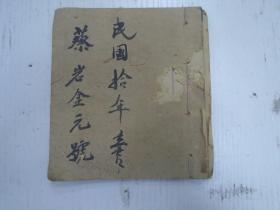 民國拾年書
蔡岩金元號